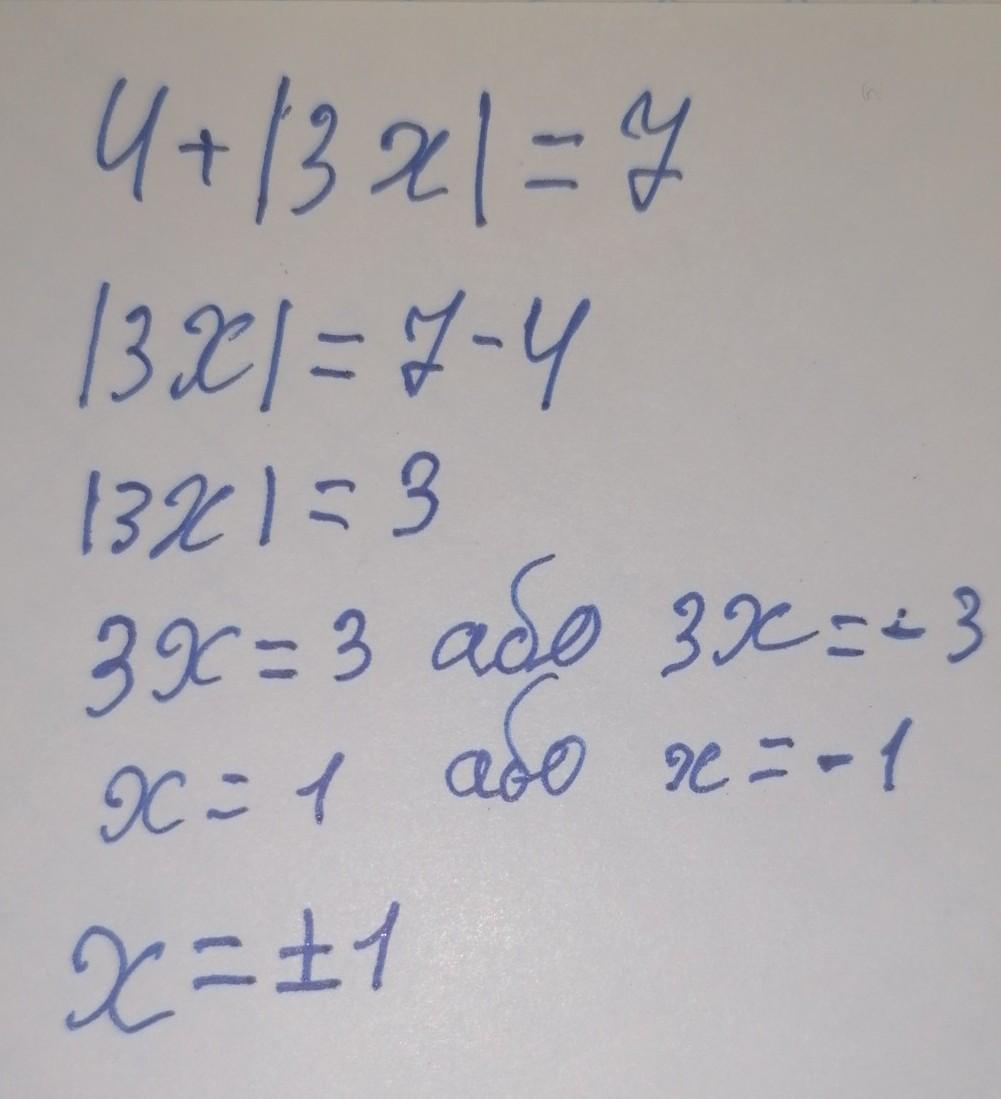 4+|3x|=7
|3x|=7-4
|3x|=3
3x=3 або 3x=-3
x=1 або x=-1
x=±1